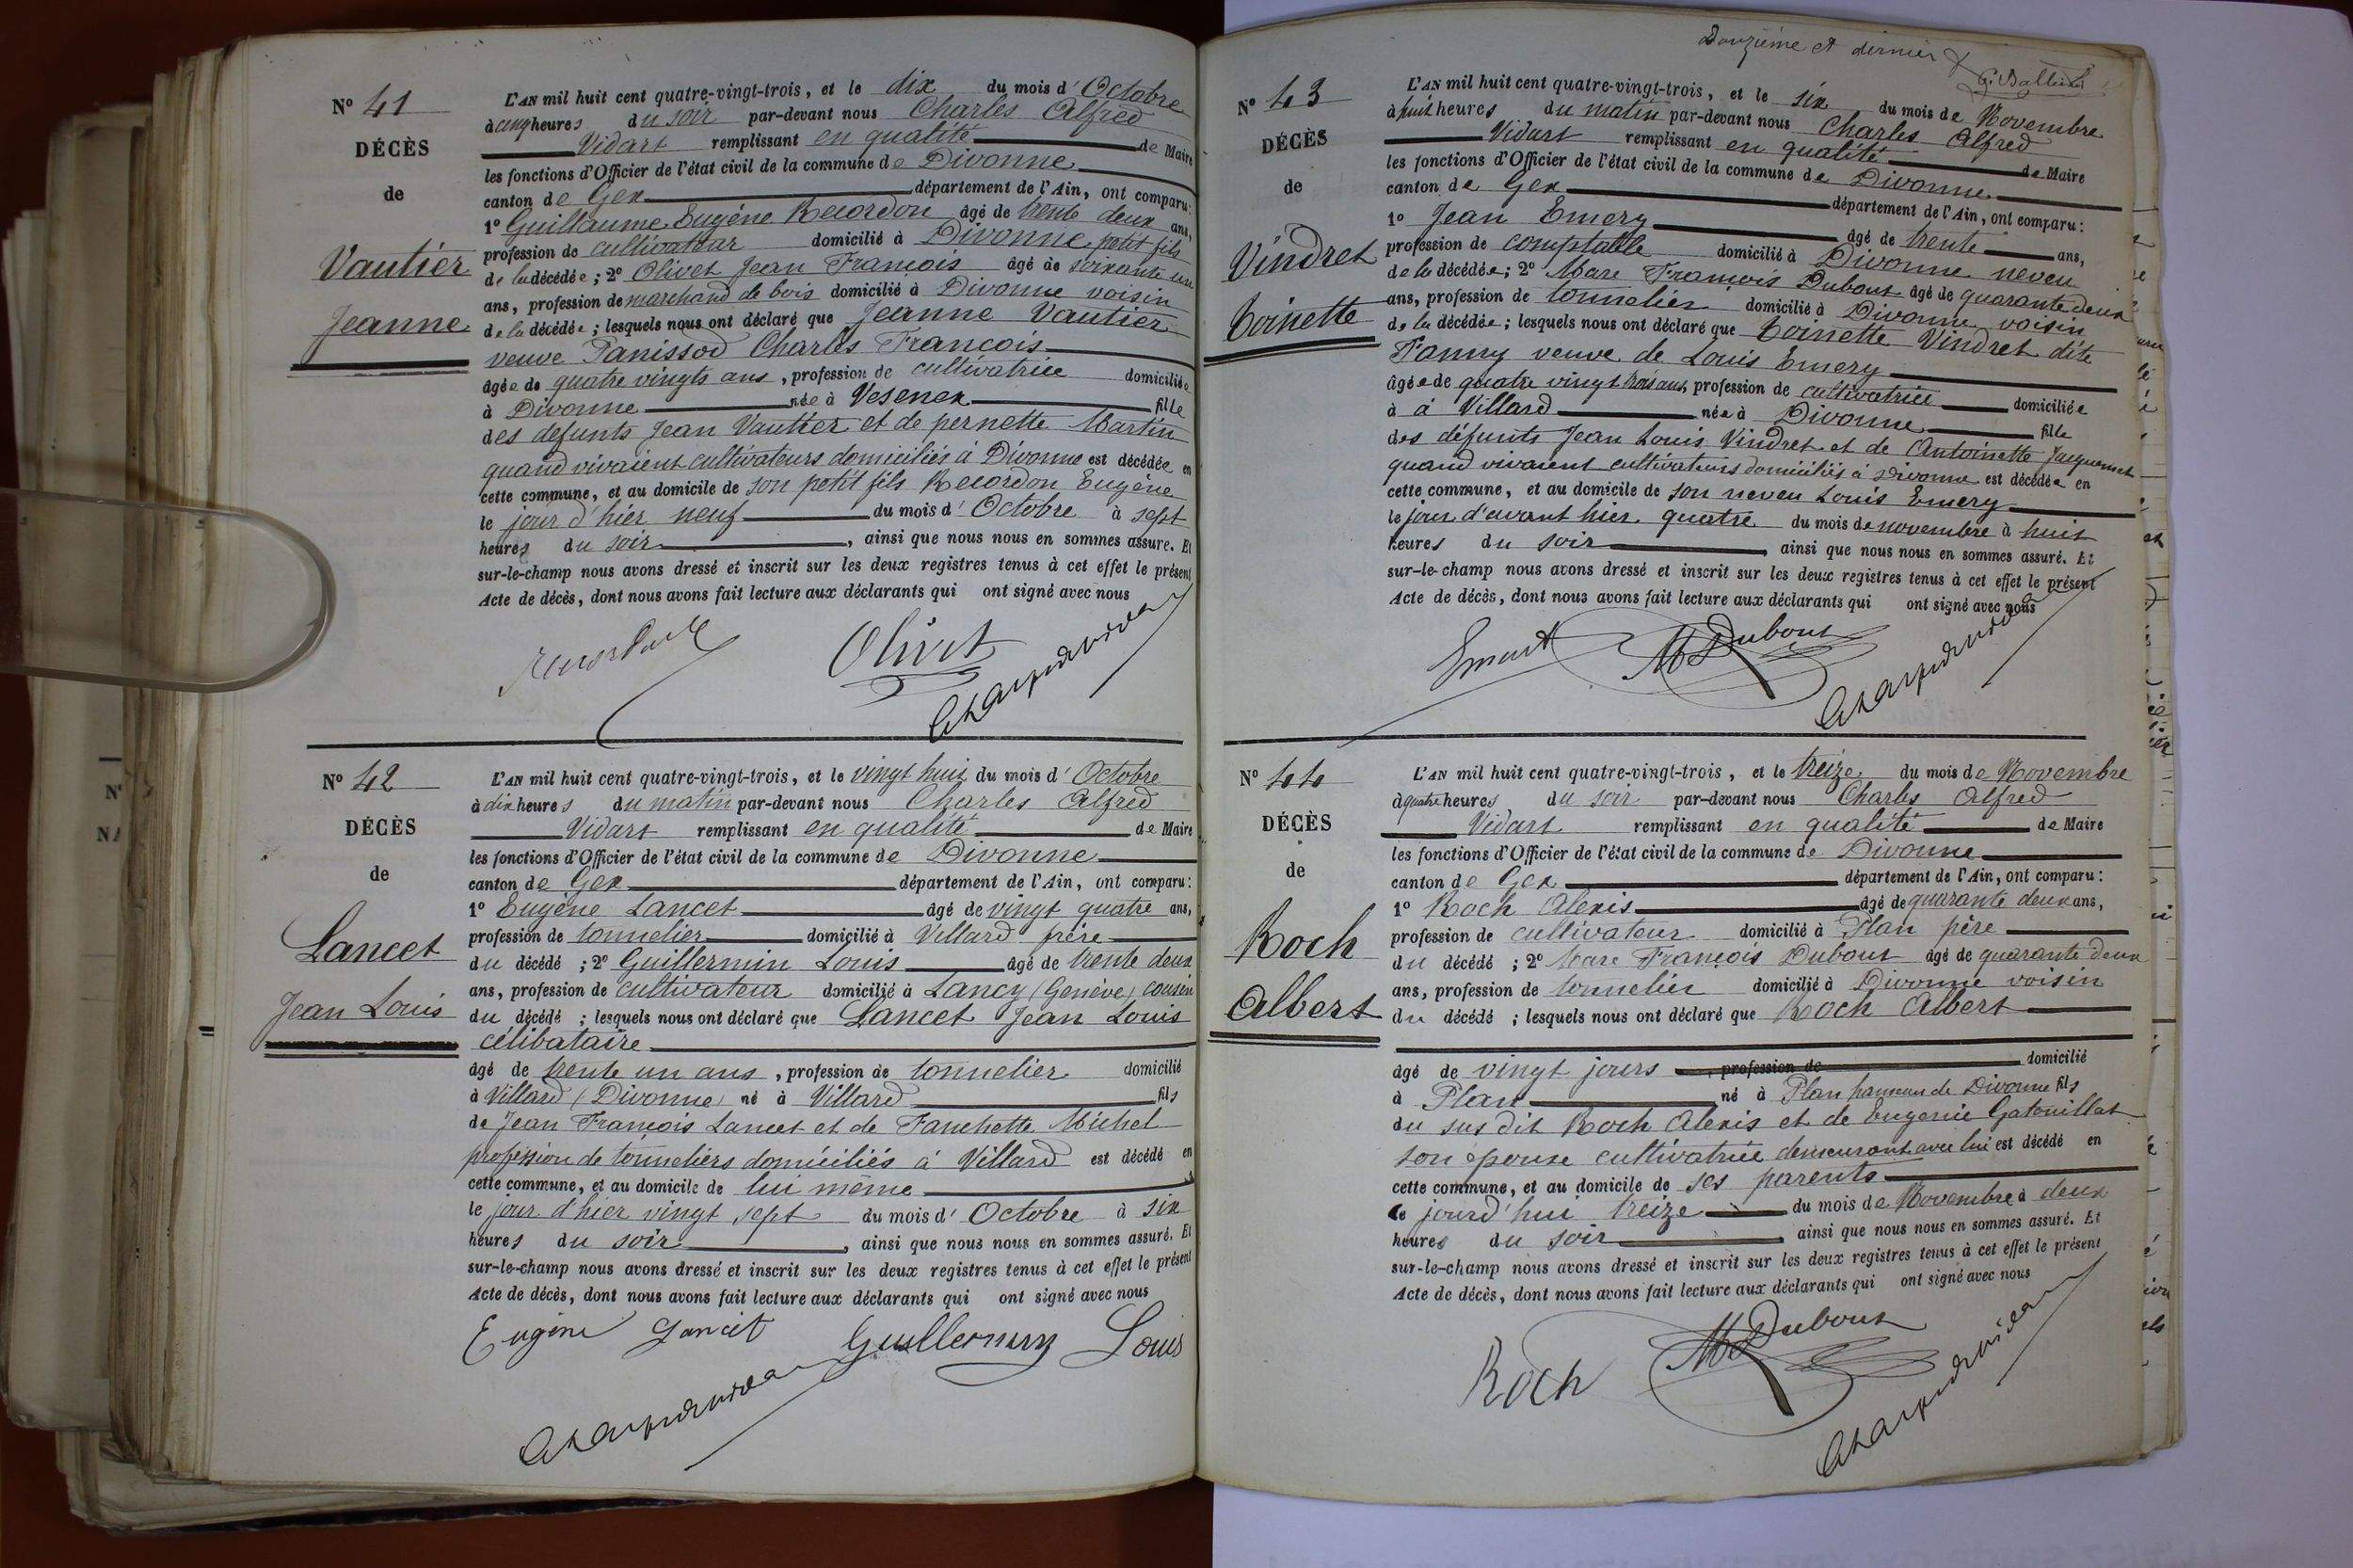 N° 41
DÉCÈS
de
Vautier
Jeanne
L'AN mil huit cent quatre-vingt-trois, et le dix du mois d'Octobre
à cinq heures du soir par-devant nous Charles Alfred
Vidart remplissant en qualité de Maire
les fonctions d'Officier de l'état civil de la commune de Divonne
canton de Gex département de l'Ain, ont comparu:
1° Guillaume Eugène Recordon âgé de trente deux ans,
profession de cultivateur domicilié à Divonne petit fils
de la décédée; 2° Olivet Jean François âgé de soixante un
ans, profession de marchand de bois domicilié à Divonne voisin
de la décédée; lesquels nous ont déclaré que Jeanne Vautier
veuve Panissod Charles François
âgée de quatre vingts ans, profession de cultivatrice domiciliée
à Divonne née à Vesenex fille
des defunts Jean Vautier et de pernette Martin
quand vivaient cultivateurs domiciliés à Divonne est décédée en
cette commune, et au domicile de son petit fils Recordon Eugène
le jour d'hier neuf du mois d'Octobre à sept
heures du soir, ainsi que nous nous en sommes assuré. Et
sur-le-champ nous avons dressé et inscrit sur les deux registres tenus à cet effet le présent
Acte de décès, dont nous avons fait lecture aux déclarants qui ont signé avec nous
Olivet
N° 42
DÉCÈS
de
Lancet
Jean Louis
L'AN mil huit cent quatre-vingt-trois, et le vingt huit du mois d'Octobre
à dix heures du matin par-devant nous Charles Alfred
Vidart remplissant en qualité de Maire
les fonctions d'Officier de l'état civil de la commune de Divonne
canton de Gex département de l'Ain, ont comparu:
1° Eugène Lancet âgé de vingt quatre ans,
profession de tonnelier domicilié à Villard frère
du décédé; 2° Guillermin Louis âgé de trente deux
ans, profession de cultivateur domicilié à Lancy (Genève) cousin
du décédé; lesquels nous ont déclaré que Lancet Jean Louis
célibataire
âgé de trente un ans, profession de tonnelier domicilié
à Villard (Divonne) né à Villard fils
de Jean François Lancet et de Fanchette Michel
profession de tonneliers domiciliés à Villard est décédé en
cette commune, et au domicile de lui même
le jour d'hier vingt sept du mois d'Octobre à six
heures du soir, ainsi que nous nous en sommes assuré. Et
sur-le-champ nous avons dressé et inscrit sur les deux registres tenus à cet effet le présent
Acte de décès, dont nous avons fait lecture aux déclarants qui ont signé avec nous
Eugène Lancet Guillermin Louis
Douzième et dernier
N° 43
DÉCÈS
de
Vindret
Toinette
L'AN mil huit cent quatre-vingt-trois, et le six du mois de Novembre
à huit heures du matin par-devant nous Charles Alfred
Vidart remplissant en qualité de Maire
les fonctions d'Officier de l'état civil de la commune de Divonne
canton de Gex département de l'Ain, ont comparu:
1° Jean Emery âgé de trente ans,
profession de comptable domicilié à Divonne neveu
de la décédée; 2° Marc François Dubout âgé de quarante deux
ans, profession de tonnelier domicilié à Divonne voisin
de la décédée; lesquels nous ont déclaré que Toinette Vindret dite
Fanny veuve de Louis Emery
âgée de quatre vingt trois ans, profession de cultivatrice domiciliée
à à Villard née à Divonne fille
des défunts Jean Louis Vindret et de Antoinette Jacquemet
quand vivaient cultivateurs domiciliés à Divonne est décédée en
cette commune, et au domicile de son neveu Louis Emery
le jour d'avant hier quatre du mois de novembre à huit
heures du soir ainsi que nous nous en sommes assuré. Et
sur-le-champ nous avons dressé et inscrit sur les deux registres tenus à cet effet le présent
Acte de décès, dont nous avons fait lecture aux déclarants qui ont signé avec nous
M Dubout
N° 44
DÉCÈS
de
Roch
Albert
L'AN mil huit cent quatre-vingt-trois, et le treize du mois de Novembre
à quatre heures du soir par-devant nous Charles Alfred
Vidart remplissant en qualité de Maire
les fonctions d'Officier de l'état civil de la commune de Divonne
canton de Gex département de l'Ain, ont comparu:
1° Roch Alexis âgé de quarante deux ans,
profession de cultivateur domicilié à Plan père
du décédé; 2° Marc François Dubout âgé de quarante deux
ans, profession de tonnelier domicilié à Divonne voisin
du décédé; lesquels nous ont déclaré que Roch Albert
âgé de vingt jours, profession de domicilié
à Plan né à Plan hameau de Divonne fils
du sus dit Roch Alexis et de Eugenie Gatouillat
son épouse cultivatrice demeurant avec lui est décédé en
cette commune, et au domicile de ses parents
le jourd'hui treize du mois de Novembre à deux
heures du soir ainsi que nous nous en sommes assuré. Et
sur-le-champ nous avons dressé et inscrit sur les deux registres tenus à cet effet le présent
Acte de décès, dont nous avons fait lecture aux déclarants qui ont signé avec nous
Roch M Dubout